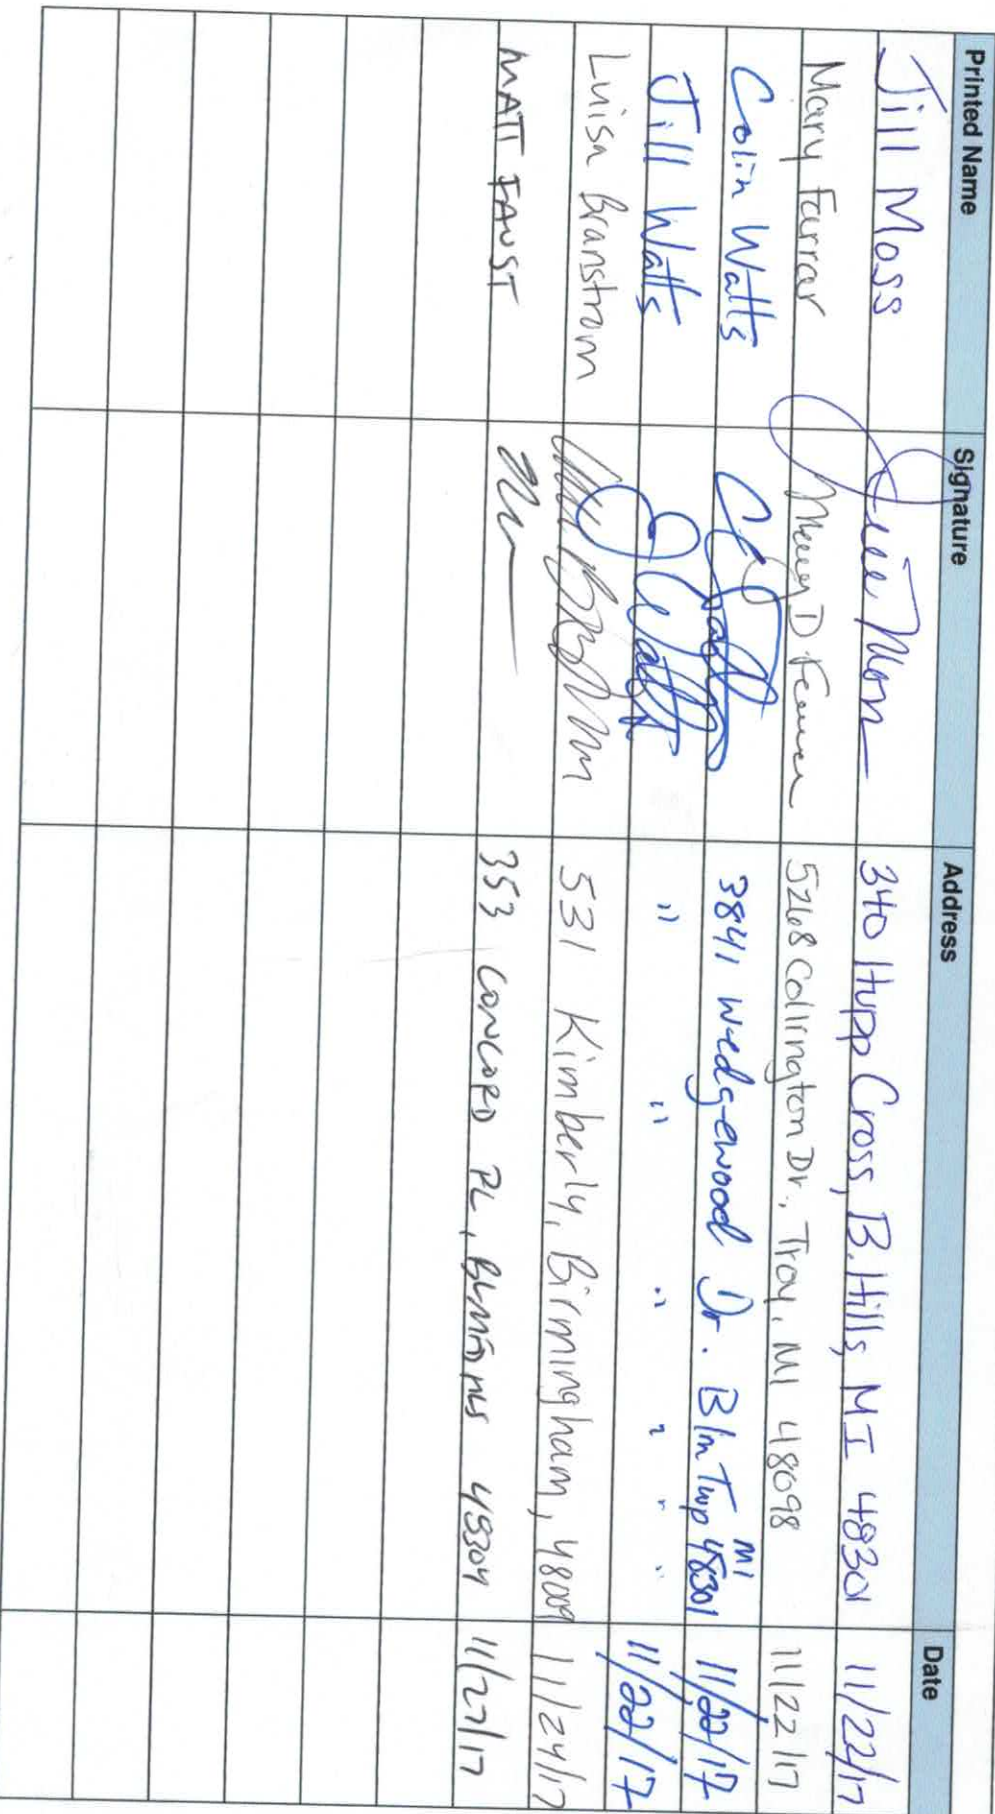 Printed Name Signature Address Date
Jill Moss Jill Moss 340 Hupp Cross, B. Hills, MI 48301 11/22/17
Mary Farrar Mary D Farrar 5268 Collington Dr., Troy, MI 48098 11/22/17
Colin Watts 3841 Wedgewood Dr. Blm Twp MI 48301 11/22/17
Jill Watts J Watts " " " " " " 11/22/17
Luisa Branstrom 531 Kimberly, Birmingham, 48009 11/24/17
MATT FAUST 353 CONCORD PL, 48304 11/27/17